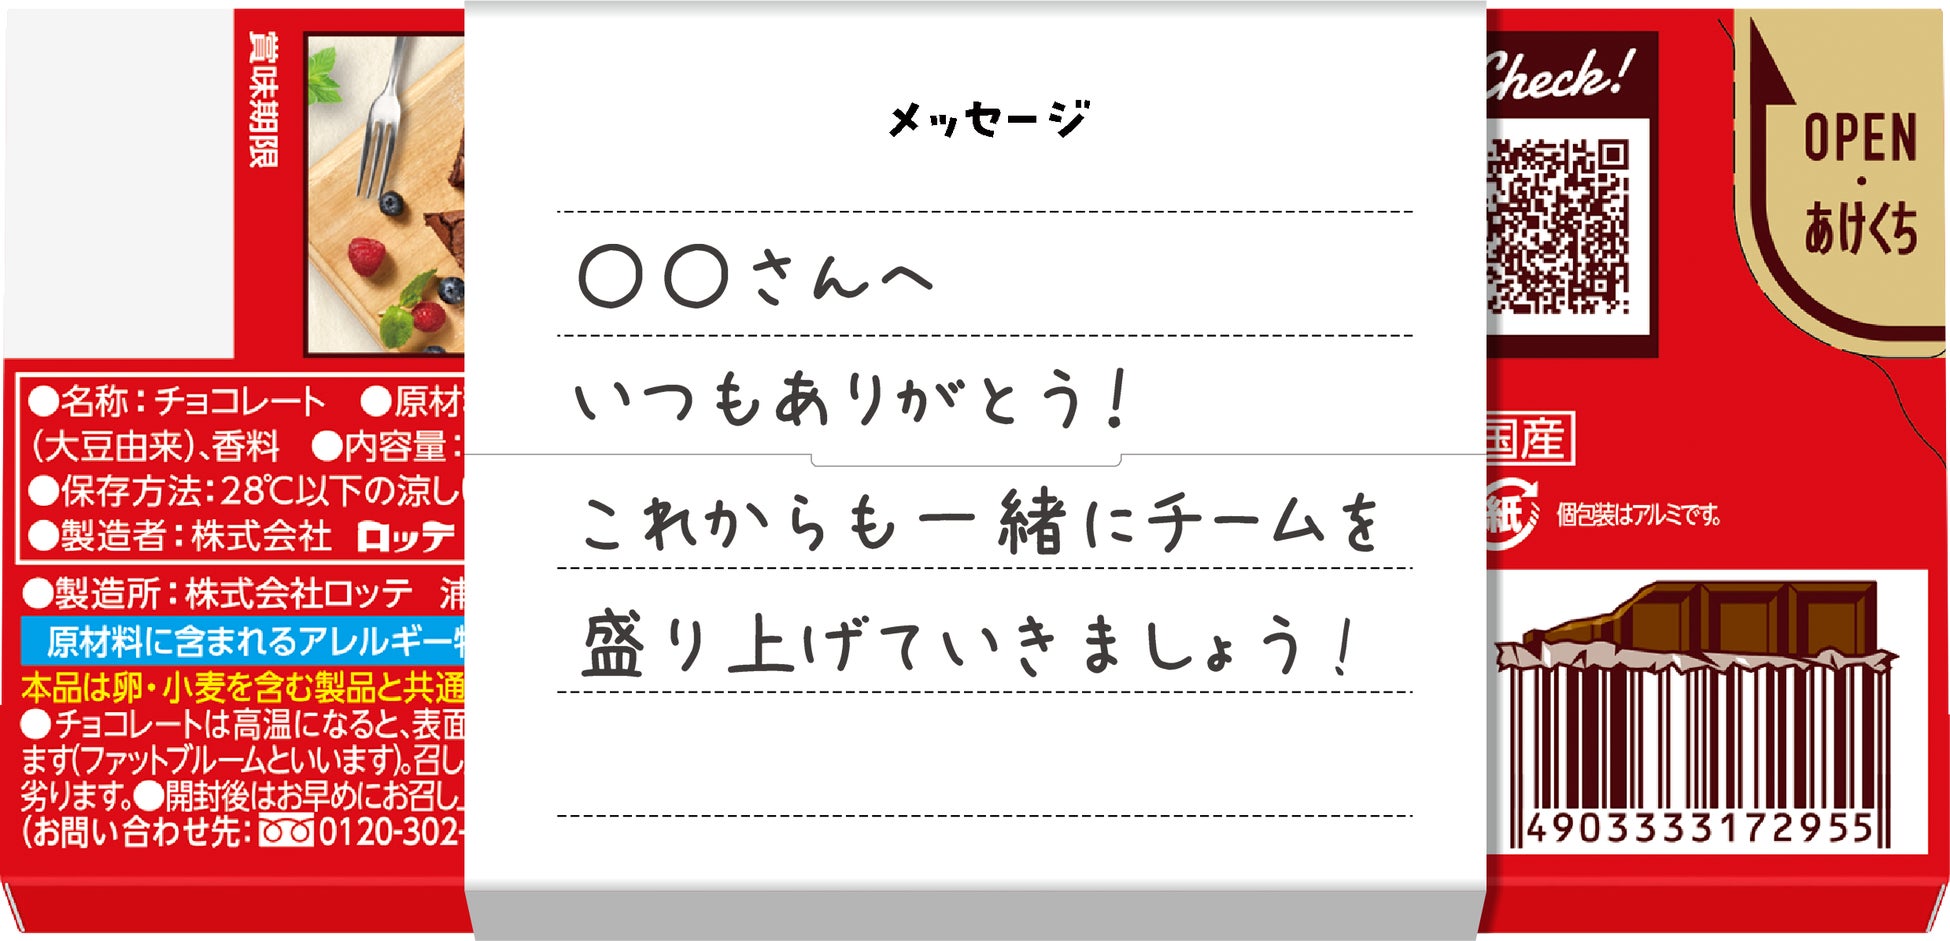 賞味期限
●名称：チョコレート ●原材
（大豆由来）、香料 ●内容量：
●保存方法：28℃以下の涼し
●製造者：株式会社 ロッテ
●製造所：株式会社ロッテ 浦
原材料に含まれるアレルギー物
本品は卵・小麦を含む製品と共通
●チョコレートは高温になると、表面
ます(ファットブルームといいます)。召し
劣ります。●開封後はお早めにお召し
(お問い合わせ先：0120-302-
メッセージ
〇〇さんへ
いつもありがとう！
これからも一緒にチームを
盛り上げていきましょう！
Check!
OPEN
・
あけくち
国産
紙
個包装はアルミです。
4903333172955